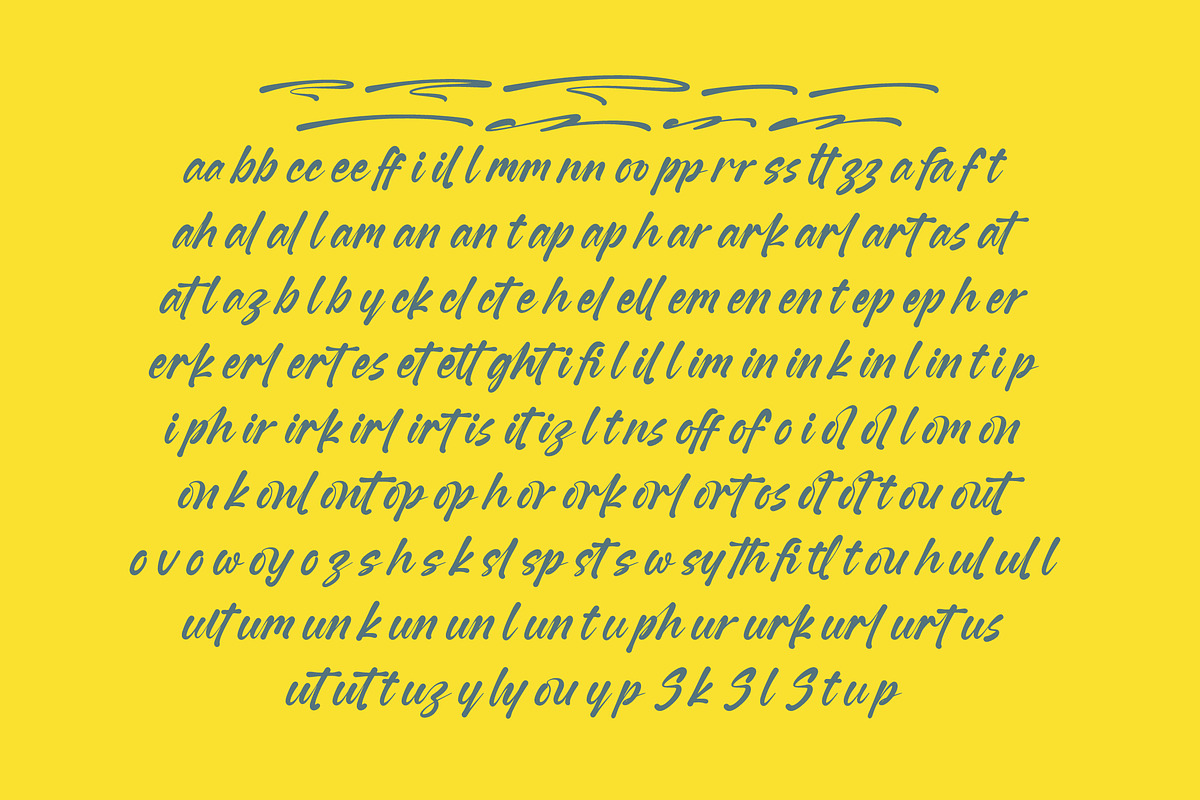 aa bb cc ee ff i il l l mm nn oo pp rr ss tt zz a fa f t
ah al al l am an an t ap ap h ar ark arl art as at
at l az b l b y ck cl ct e h el ell em en en t ep ep h er
erk erl ert es et ett ght i fi l il l im in in k in l in t i p
i ph ir irk irl irt is it iz l t ns off of o i ol ol l om on
on k onl ont op op h or ork orl ort os ot ot t ou out
o v o w oy o z s h s k sl sp st s w sy th fi tl t ou h ul ul l
ult um un k un un l un t u ph ur urk url urt us
ut ut t uz y ly ou y p S k S l S t u p